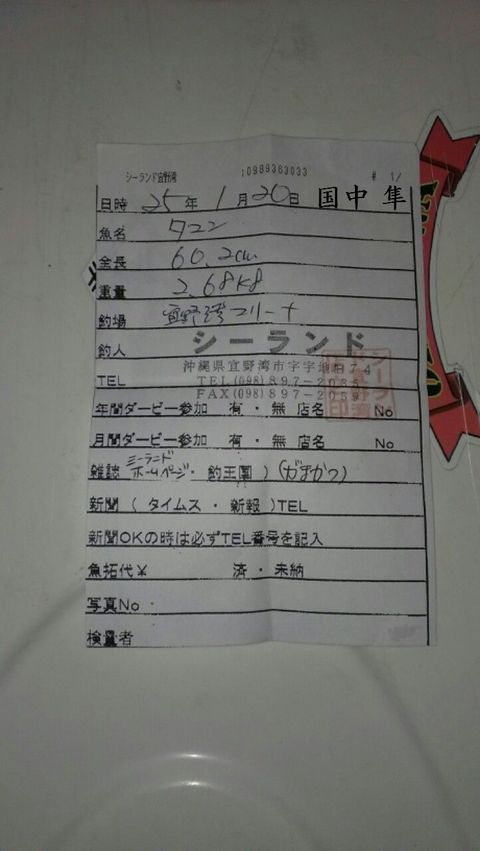 シーランド宜野湾 ;0989363033 # 1/
日時 25年 1月20日 国中 隼
魚名 タコン
全長 60.2cm
重量 2.68K8
釣場 宜野湾マリーナ
釣人 シーランド
沖縄県宜野湾市字宇地泊74
TEL TEL(098)897-2035
FAX(098)897-2059
年間ダービー参加 有・無 店名 No
月間ダービー参加 有・無 店名 No
雑誌 シーランドホームページ・釣王国)(がまかつ)
新聞 ( タイムス・新報 )TEL
新聞OKの時は必ずTEL番号を記入
魚拓代¥ 済・未納
写真No
検量者